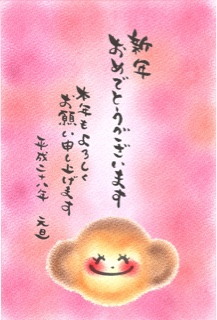 新年
おめでとうございます
本年もよろしく
お願い申し上げます
平成二十八年 元旦